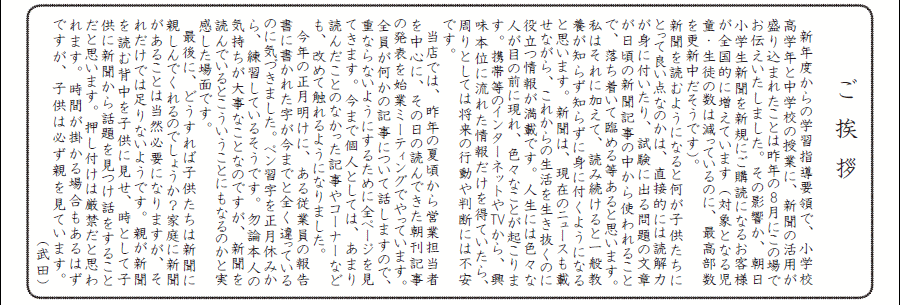 ご挨拶
新年度からの学習指導要領で、小学校
高学年と中学校の授業に、新聞の活用が
盛り込まれたことは昨年の8月にこの場で
お伝えいたしました。その影響か、朝日
小学生新聞を新規にご購読になるお客様
が全国的に増えています（対象となる児
童・生徒の数は減っているのに、最高部数
を更新中だそうです）。
新聞を読むようになると何が子供たちに
とって良い点なのかは、直接的には読解力
が身に付いたり、試験に出る問題の文章
が日頃の新聞記事の中から使われること
で、落ち着いて臨める等あると思います。
私はそれに加えて、読み続けると一般教
養が知らず知らずに身に付くようになる
と思います。新聞は、現在のニュースも載
せながら、これからの生活を生き抜くのに
役立つ情報が満載です。人生には色々な
人が目の前に現れ、色々なことが起こりま
す。携帯等のインターネットやTVから、興
味本位に流れた情報だけを得ていたら、
周りとしては将来の行動や判断には不安
です。
当店では、昨年の夏頃から営業担当者
を中心に、その日の読んできた朝刊記事
の発表を始業ミーティングでやっています。
全員が何かの記事について話しますので、
重ならないようにするために全ページを見
てきます。今まで個人としては、あまり
読んだことのなかった記事やコーナーなど
も、改めて触れるようになりました。
今年の正月明けに、ある従業員の報告
書に書かれた字が今までと全く違っている
のに気づきました。ペン習字を正月休みか
ら、練習しているそうです。勿論本人の
気持ちが大事なことなのですが、新聞を
読んでいるとこういうことにもなるのかと実
感した場面です。
最後に、どうすれば子供たちは新聞に
親しんでくれるのでしょうか？家庭に新聞
があることは当然必要になりますが、そ
れだけでは足りないようです。親が新聞
を読む背中を子供に見せ、時として子
供に新聞から話題を見つけ話をすること
だと思います。押し付けは厳禁だと思わ
れます。時間が掛かる場合もあるはず
ですが、子供は必ず親を見ています。
（武田）